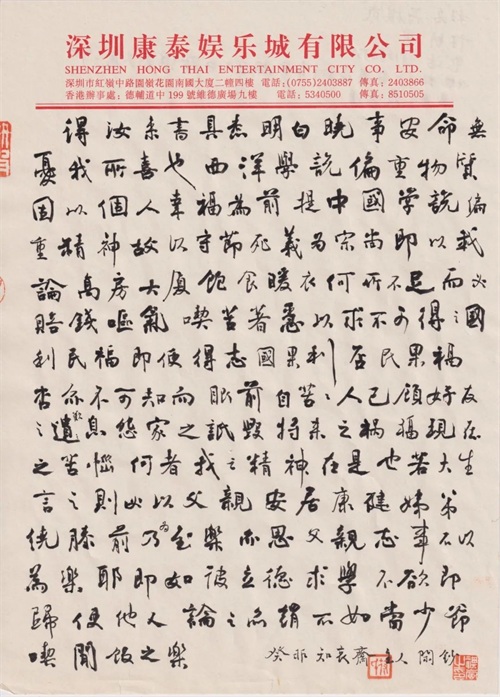 深圳康泰娱乐城有限公司
SHENZHEN HONG THAI ENTERTAINMENT CITY CO. LTD.
深圳市紅嶺中路園嶺花園南國大廈二幢四樓 電話：(0755)2403887 傳真：2403866
香港辦事處：德輔道中199號維德廣場九樓 電話：5340500 傳真：8510505
得汝来書具悉明白曉事安命無
憂我所喜也西洋學説偏重物質
固以個人幸福為前提中國学說偏
重精神故以守節死義为宗尚即以我
論高房大厦飽食暖衣何所不足而必
賠錢嘔氣喫苦著悉以求不可得之國
利民福即便得志國果利否民果福
否亦不可知而眼前自苦苦人已顧好友
之遺息態家之詆毀特来之禍福現在
之苦惱何者我之精神在是也若大生
言之則必以父親安居康健姊弟
繞膝前乃为至樂亦思父親志事不以
為樂耶即如彼立德求學不欲即
歸使他人論之亦謂不如當少爺
喫閒飯之樂
癸非知袁齋主人閒鈔